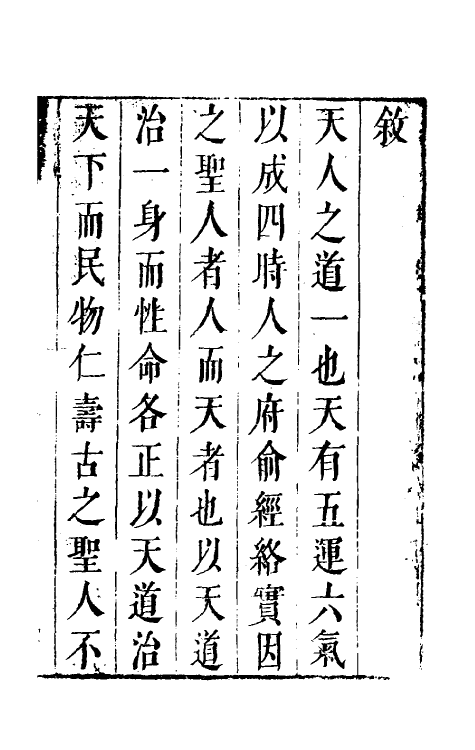 敘
天人之道一也天有五運六氣
以成四時人之府俞經絡實因
之聖人者人而天者也以天道
治一身而性命各正以天道治
天下而民物仁壽古之聖人不